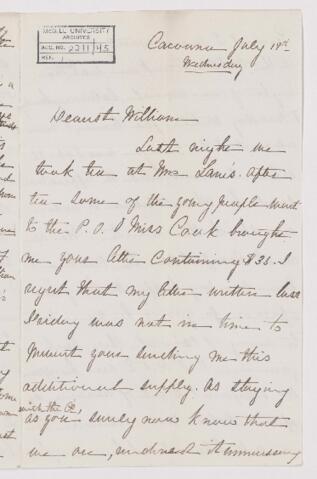 McGILL UNIVERSITY
ARCHIVES
ACC. NO. 2211/45
REF.
Cacouna July 19th
Wednesday
Dearest William
Last night we
took tea at Mrs Lane's. After
tea some of the young people went
to the P.O. & Miss Cook brought
me your letter containing $35. I
regret that my letter written last
Friday was not in time to
prevent your sending me this
additional supply. As staying
with the
as you surely now know that
we are, rendered it unnecessary